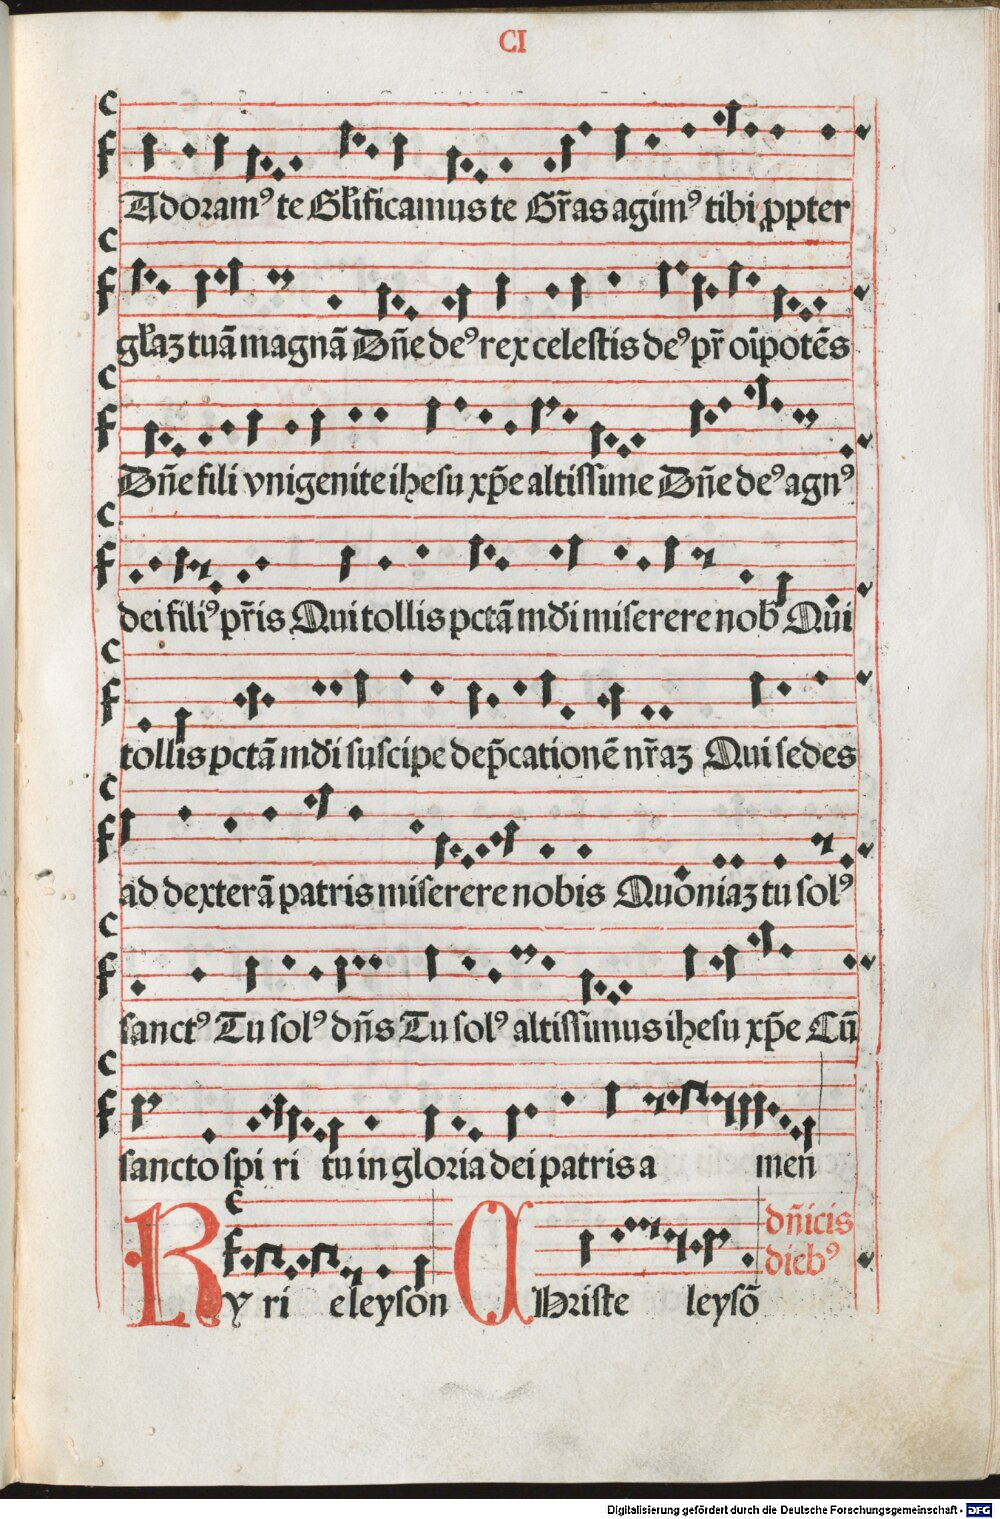 CI
Adoramꝰ te Gl̄ificamus te Gr̄as agimꝰ tibi ꝓpter
gl̄aꝫ tuā magnā Dn̄e deꝰ rex celestis deꝰ pr̄ oīpotēs
Dn̄e fili vnigenite ihesu xp̄e altissime Dn̄e deꝰ agnꝰ
dei filiꝰ pr̄is Qui tollis pctā mūdi miserere nob̄ Qui
tollis pctā mūdi suscipe dep̄cationē nr̄aꝫ Qui sedes
ad dexterā patris miserere nobis Quoniaꝫ tu solꝰ
sanctꝰ Tu solꝰ dn̄s Tu solꝰ altissimus ihesu xp̄e Cū
sancto spi ri tu in gloria dei patris a men
Ky ri eleyson Christe leysō
dn̄icis
diebꝰ
Digitalisierung gefördert durch die Deutsche Forschungsgemeinschaft - DFG